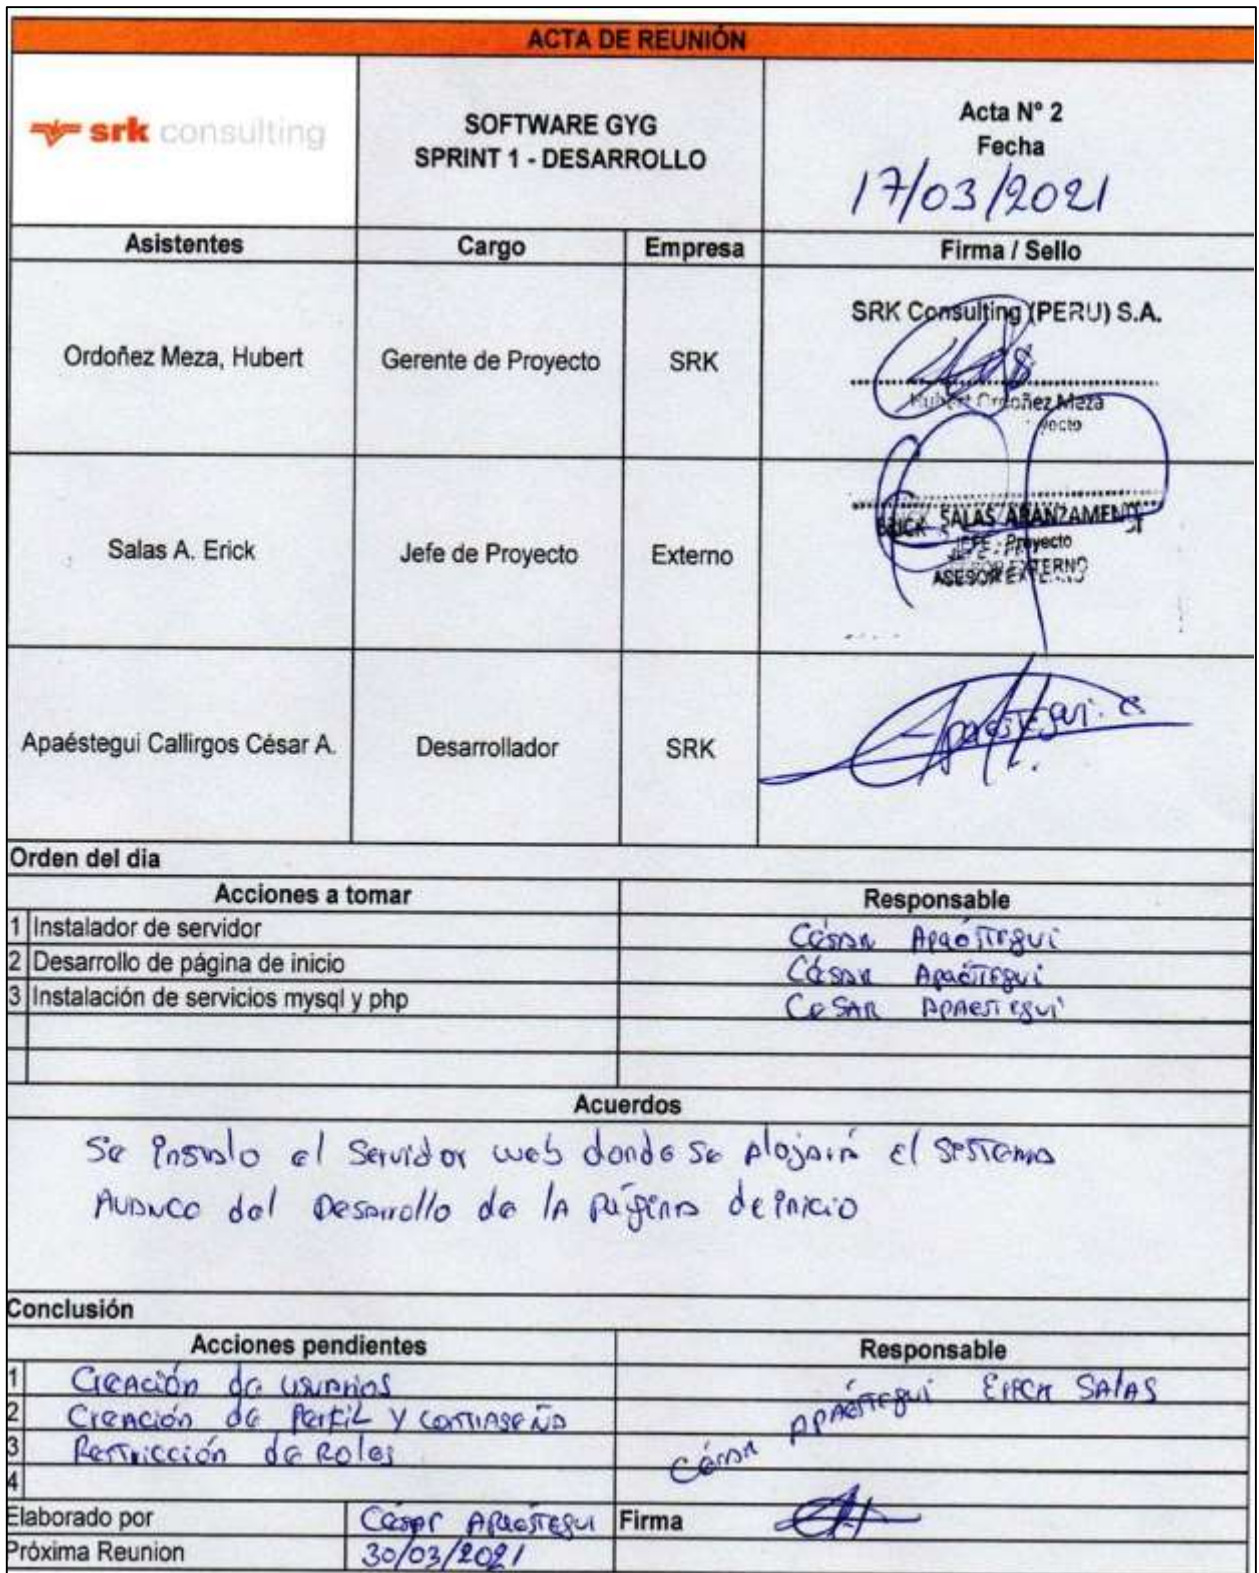 ACTA DE REUNIÓN
srk consulting
SOFTWARE GYG
SPRINT 1 - DESARROLLO
Acta N° 2
Fecha
17/03/2021
Asistentes Cargo Empresa Firma / Sello
Ordoñez Meza, Hubert Gerente de Proyecto SRK
SRK Consulting (PERU) S.A.
Hubert Ordoñez Meza
Salas A. Erick Jefe de Proyecto Externo
ERICK SALAS ARANZAMENDI
JEFE - Proyecto
ASESOR EXTERNO
Apaéstegui Callirgos César A. Desarrollador SRK
Apaéstegui. C
Orden del dia
Acciones a tomar Responsable
1 Instalador de servidor César Apaéstegui
2 Desarrollo de página de inicio César Apaéstegui
3 Instalación de servicios mysql y php CeSAR Apaestegui
Acuerdos
Se instalo el Servidor web donde se alojará el sistema
Avance del Desarrollo de la página de inicio
Conclusión
Acciones pendientes Responsable
1 Creación de usuarios
2 Creación de Perfil y contraseña
3 Restricción de Roles
4
César Apaéstegui Erick Salas
Elaborado por César Apaéstegui Firma
Próxima Reunion 30/03/2021